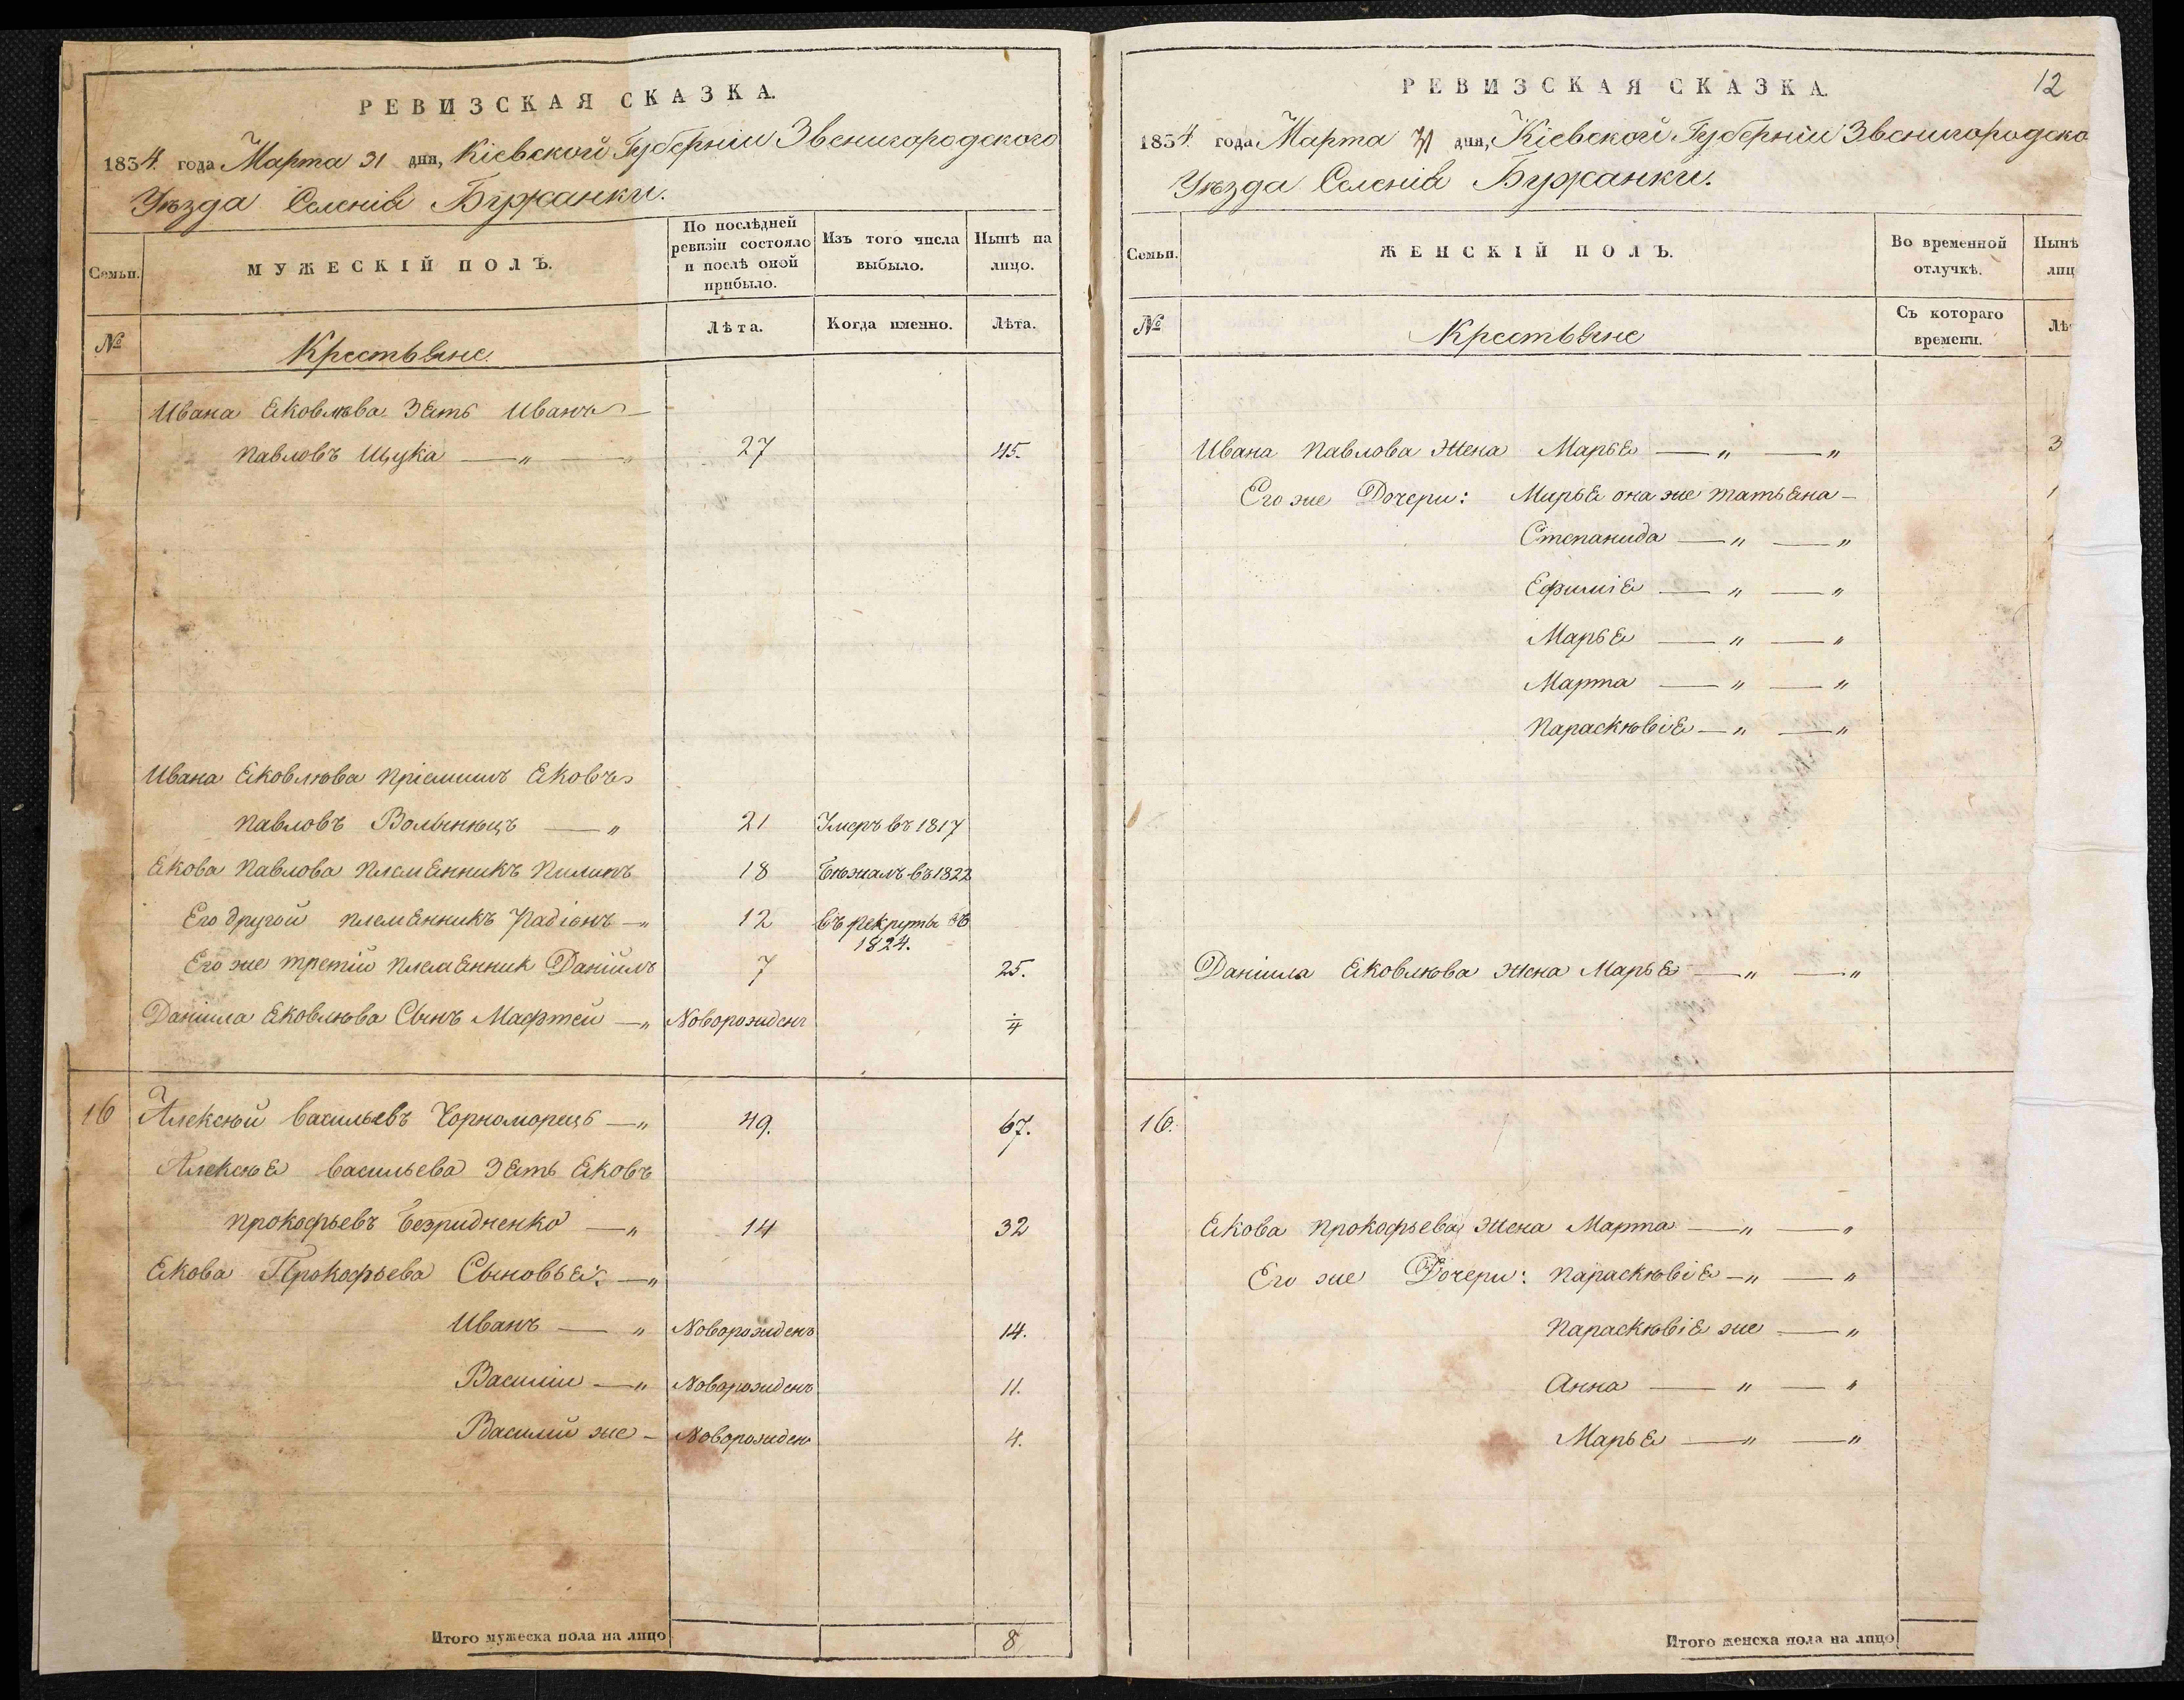 РЕВИЗСКАЯ СКАЗКА.
1834. года Марта 31 дня, Кіевской Губерніи Звенигородскаго
Уѣзда Селенія Бужанки.
Семьи.
МУЖЕСКІЙ ПОЛЪ.
По послѣдней
ревизіи состояло
и послѣ оной
прибыло.
Изъ того числа
выбыло.
Нынѣ на
лицо.
№
Крестьяне.
Лѣта.
Когда именно.
Лѣта.
Ивана Яковлѣва Зять Иванъ
Павловъ Щука — „ — 27 45.
Ивана Яковлѣва пріемишъ Яковъ
Павловъ Волынѣцъ — „ 21 Умеръ въ 1817
Якова Павлова племянникъ Пилипъ 18 Бѣжалъ въ 1822
Его другой племянникъ Радіонъ — „ 12 въ рекруты въ
1824.
Его же третій племянник Даніилъ 7 25.
Даніила Яковлѣва Сынъ Мафтей — „ Новорожденъ ¼
16 Алексѣй Васильевъ Чорноморець — „ 49. 67.
Алексѣя Васильева Зять Яковъ
Прокофьевъ Безридненко — „ 14 32
Якова Прокофьева Сыновья: — „
Иванъ — „ Новорожденъ 14.
Василій — „ Новорожденъ 11.
Василий же — Новорожден 4.
Итого мужеска пола на лицо 8
12
РЕВИЗСКАЯ СКАЗКА.
1834. года Марта 31 дня, Кіевской Губерніи Звенигородско
Уѣзда Селенія Бужанки.
Семьи.
ЖЕНСКІЙ ПОЛЪ.
Во временной
отлучкѣ.
Нынѣ
лиц
№
Крестьяне
Съ котораго
времени.
Лѣ
Ивана Павлова Жена Марья — „ — „ 3
Его же Дочери: Марья она же Татьяна — 1
Степанида — „ — „
Ефимія — „ — „
Марья — „ — „
Марта — „ — „
Параскѣвія — „ — „
Даніила Яковлѣва жена Марья — „ — „
16.
Якова Прокофьева жена Марта — „ — „
Его же Дочери: Параскѣвія — „ — „
Параскѣвія же — „
Анна — „ — „
Марья — „ — „
Итого женска пола на лицо